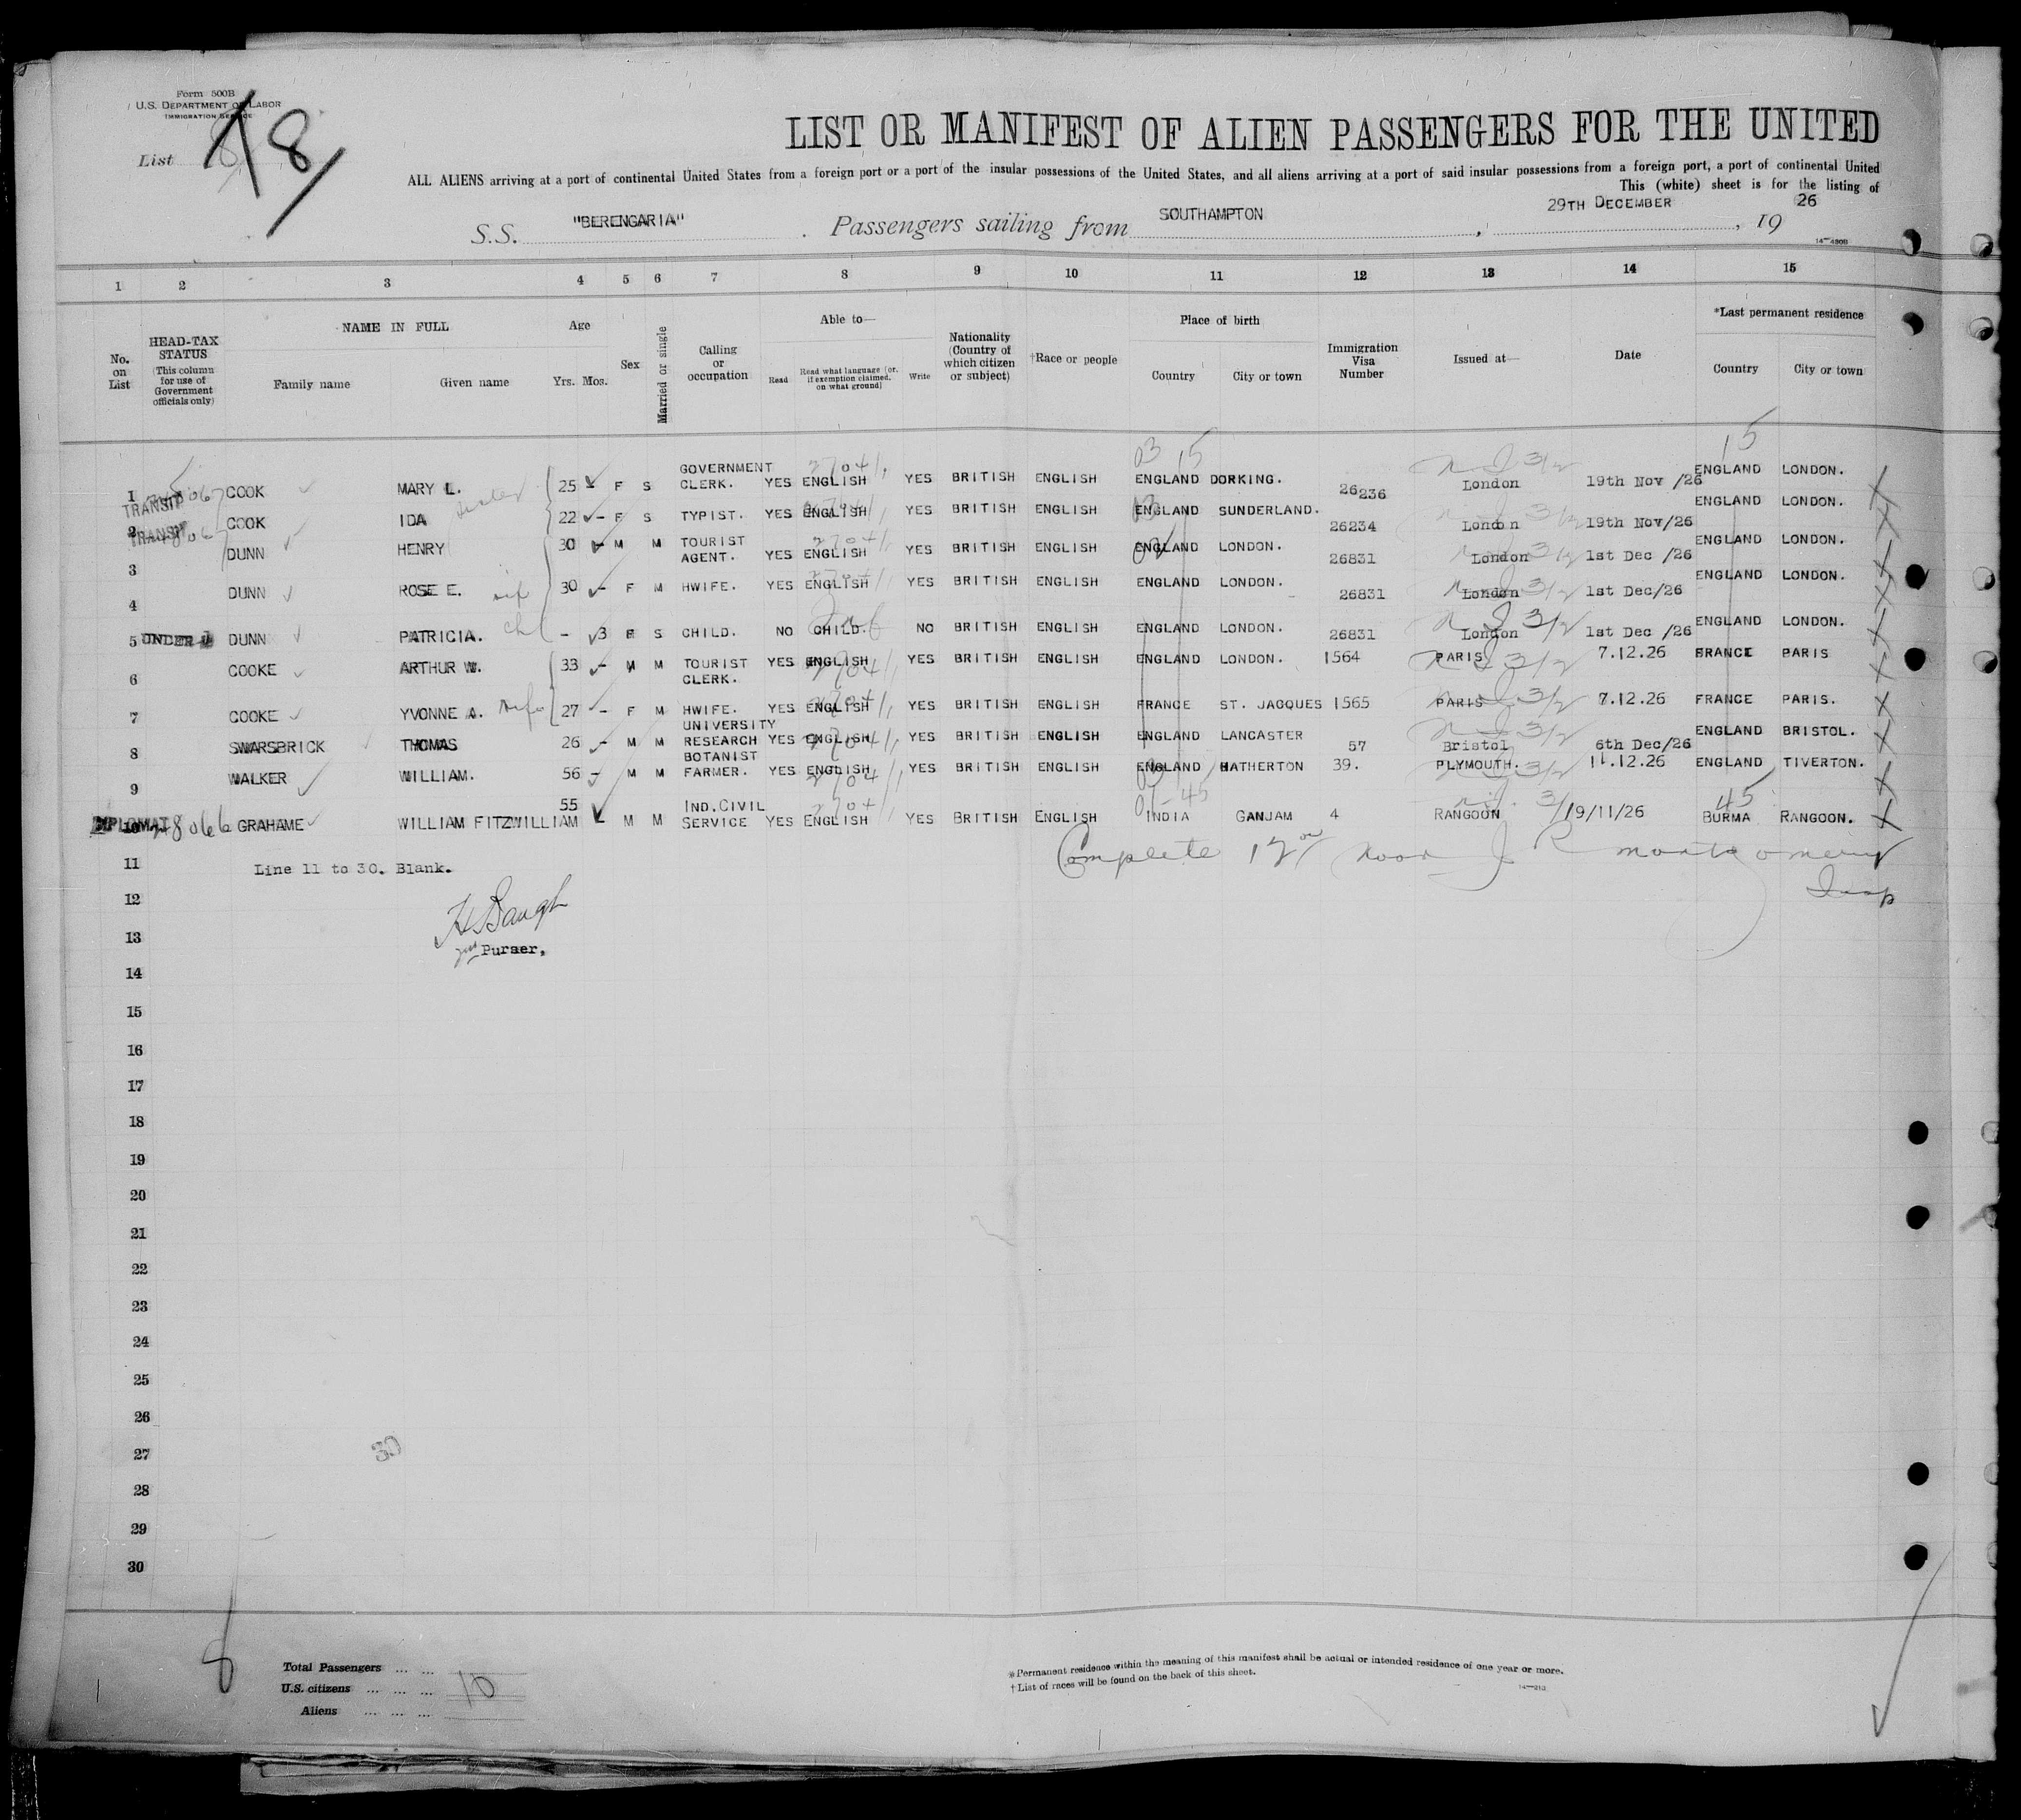 Form 500B
U.S. DEPARTMENT OF LABOR
IMMIGRATION SERVICE
List 8
18
LIST OR MANIFEST OF ALIEN PASSENGERS FOR THE UNITED
ALL ALIENS arriving at a port of continental United States from a foreign port or a port of the insular possessions of the United States, and all aliens arriving at a port of said insular possessions from a foreign port, a port of continental United
This (white) sheet is for the listing of
S.S. "BERENGARIA" . Passengers sailing from SOUTHAMPTON , 29TH DECEMBER , 19 26
1 2 3 4 5 6 7 8 9 10 11 12 13 14 15
No. on List
HEAD-TAX STATUS (This column for use of Government officials only)
NAME IN FULL
Family name Given name
Age
Yrs. Mos.
Sex
Married or single
Calling or occupation
Able to—
Read
Read what language (or, if exemption claimed, on what ground)
Write
Nationality (Country of which citizen or subject)
†Race or people
Place of birth
Country City or town
Immigration Visa Number
Issued at—
Date
*Last permanent residence
Country City or town
1 TRANSIT COOK MARY L. sister 25 - F S GOVERNMENT CLERK. YES ENGLISH YES BRITISH ENGLISH ENGLAND DORKING. 26236 London 19th Nov /26 ENGLAND LONDON.
2 TRANSIT COOK IDA 22 - F S TYPIST. YES ENGLISH YES BRITISH ENGLISH ENGLAND SUNDERLAND. 26234 London 19th Nov/26 ENGLAND LONDON.
3 DUNN HENRY 30 - M M TOURIST AGENT. YES ENGLISH YES BRITISH ENGLISH ENGLAND LONDON. 26831 London 1st Dec /26 ENGLAND LONDON.
4 DUNN ROSE E. wife 30 - F M HWIFE. YES ENGLISH YES BRITISH ENGLISH ENGLAND LONDON. 26831 London 1st Dec/26 ENGLAND LONDON.
5 UNDER DUNN PATRICIA. ch - 3 F S CHILD. NO CHILD. NO BRITISH ENGLISH ENGLAND LONDON. 26831 London 1st Dec /26 ENGLAND LONDON.
6 COOKE ARTHUR W. 33 - M M TOURIST CLERK. YES ENGLISH YES BRITISH ENGLISH ENGLAND LONDON. 1564 PARIS 7.12.26 FRANCE PARIS
7 COOKE YVONNE A. wife 27 - F M HWIFE. YES ENGLISH YES BRITISH ENGLISH FRANCE ST. JACQUES 1565 PARIS 7.12.26 FRANCE PARIS.
8 SWARSBRICK THOMAS 26 - M M UNIVERSITY RESEARCH BOTANIST YES ENGLISH YES BRITISH ENGLISH ENGLAND LANCASTER 57 Bristol 6th Dec/26 ENGLAND BRISTOL.
9 WALKER WILLIAM. 56 - M M FARMER. YES ENGLISH YES BRITISH ENGLISH ENGLAND HATHERTON 39. PLYMOUTH. 11.12.26 ENGLAND TIVERTON.
10 DIPLOMAT 48066 GRAHAME WILLIAM FITZWILLIAM 55 - M M IND.CIVIL SERVICE YES ENGLISH YES BRITISH ENGLISH INDIA GANJAM 4 RANGOON 19/11/26 BURMA RANGOON.
11 Line 11 to 30. Blank.
Complete 12 noon J R Montgomery
Insp
12
H Baugh
13
2nd Purser,
14
15
16
17
18
19
20
21
22
23
24
25
26
27
30
28
29
30
Total Passengers ... ...
U.S. citizens ... ... ... 10
Aliens ... ... ...
*Permanent residence within the meaning of this manifest shall be actual or intended residence of one year or more.
†List of races will be found on the back of this sheet.